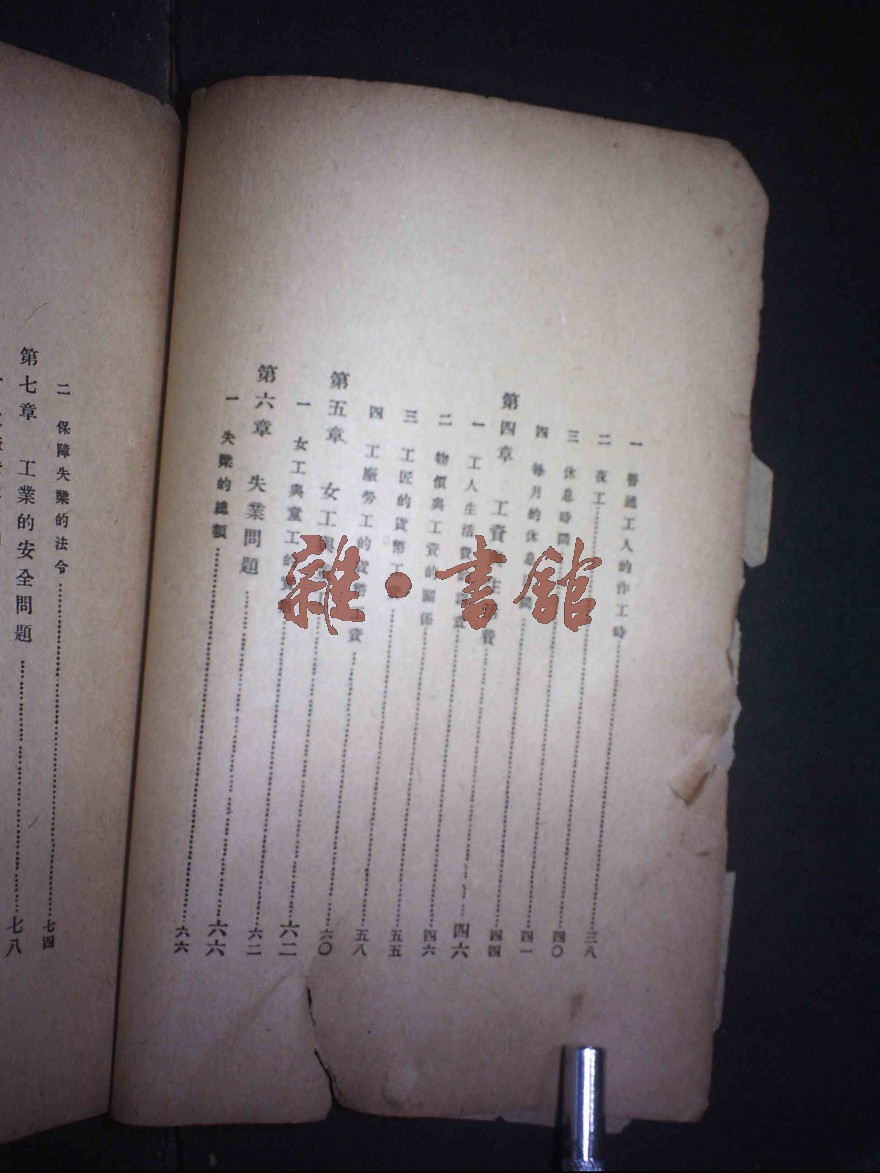 一 普通工人的作工時……三八
二 夜工……四〇
三 休息時間……四一
四 每月的休息間……四四
第四章 工資生費……四六
一 工人生活費……四六
二 物價與工資的關係……五五
三 工匠的貨幣工……五八
四 工廠勞工的貨幣資……六〇
第五章 女工與……六二
一 女工與童工的……六二
第六章 失業問題……六六
一 失業的總額……六六
二 保障失業的法令……七四
第七章 工業的安全問題……七八
雜·書館